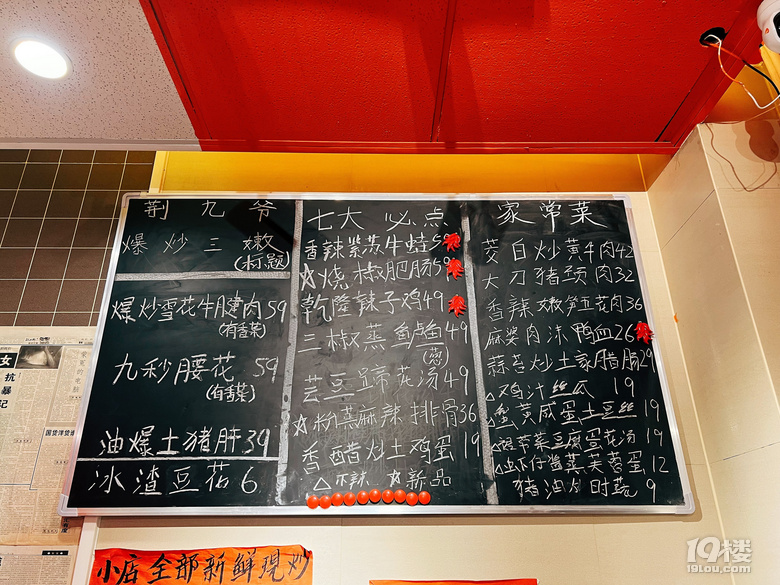 荆九爷
爆炒三嫩
(标题)
爆炒雪花牛腱肉59
(有香菜)
九秒腰花 59
(有香菜)
油爆土猪肝39
冰渣豆花6
七大必点
香辣紫苏牛蛙59
☆烧椒肥肠59
乾隆辣子鸡49
三椒蒸鲈鱼49
(葱)
芸豆蹄花汤49
☆粉蒸麻辣排骨36
香醋炒土鸡蛋19
△不辣 ☆新品
家常菜
茭白炒黄牛肉42
大刀猪颈肉32
香辣嫩笋五花肉36
麻婆肉沫鸭血26
蒜苔炒土家腊肠29
△鸡汁丝瓜 19
△蟹黄咸蛋土豆丝19
菜豆腐蛋花汤 19
芙蓉蛋 12
猪油炒时蔬 9
小店全部新鲜现炒
女
抗
暴
记
国货洋货
19楼
19lou.com